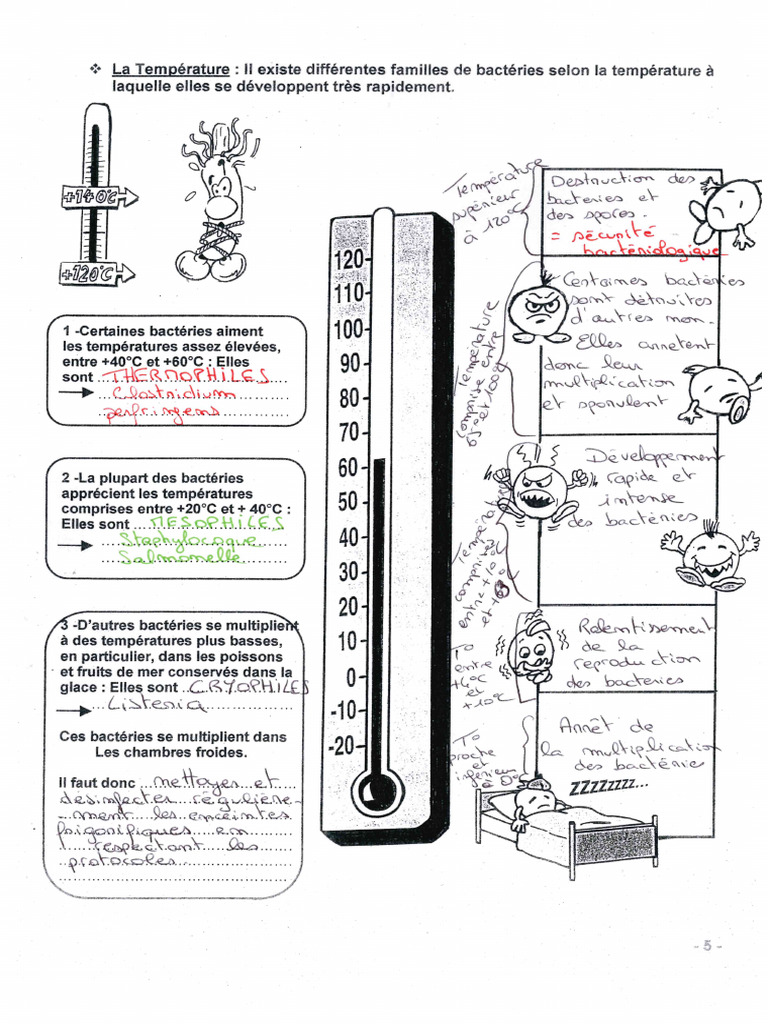 ❖ La Température : Il existe différentes familles de bactéries selon la température à
laquelle elles se développent très rapidement.
+140°C
+120°C
1 -Certaines bactéries aiment
les températures assez élevées,
entre +40°C et +60°C : Elles
sont THERMOPHILES
Clostridium
perfringens
2 -La plupart des bactéries
apprécient les températures
comprises entre +20°C et + 40°C :
Elles sont MESOPHILES
Staphylocoque
Salmonelle
3 -D'autres bactéries se multiplient
à des températures plus basses,
en particulier, dans les poissons
et fruits de mer conservés dans la
glace : Elles sont CRYOPHILES
Listeria
Ces bactéries se multiplient dans
Les chambres froides.
Il faut donc nettoyer et
désinfecter régulière-
ment les enceintes
frigorifiques en
respectant les
protocoles
120
110
100
90
80
70
60
50
40
30
20
10
0
-10
-20
Température
supérieur
à 120°C
Destruction des
bacteries et
des spores.
= sécurité
bactériologique
Température
comprise entre
63 et 100°
Certaines bactéries
sont détruites
d'autres non.
Elles arretent
donc leur
multiplication
et sporulent
Température
comprises
entre +10°C
et +63
Développement
rapide et
intense
des bactéries
To
entre
+4°C
et
+10°C
Ralentissement
de la
reproduction
des bacteries
To
proche
et
inférieur
à 0°
Arrêt de
la multiplication
des bactérie
zzzzzzzz...
- 5 -